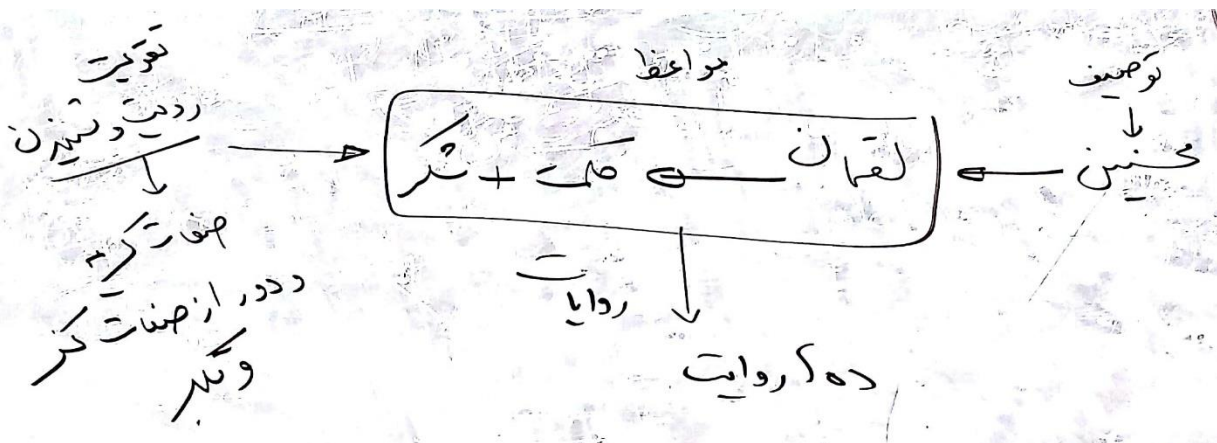 توصیف
محسنین
مواعظ
لقمان
حکمت + شکر
روایات
ده‌ها روایت
تقویت
صفات کریمه
و دور از صفات کفر
و تکبر